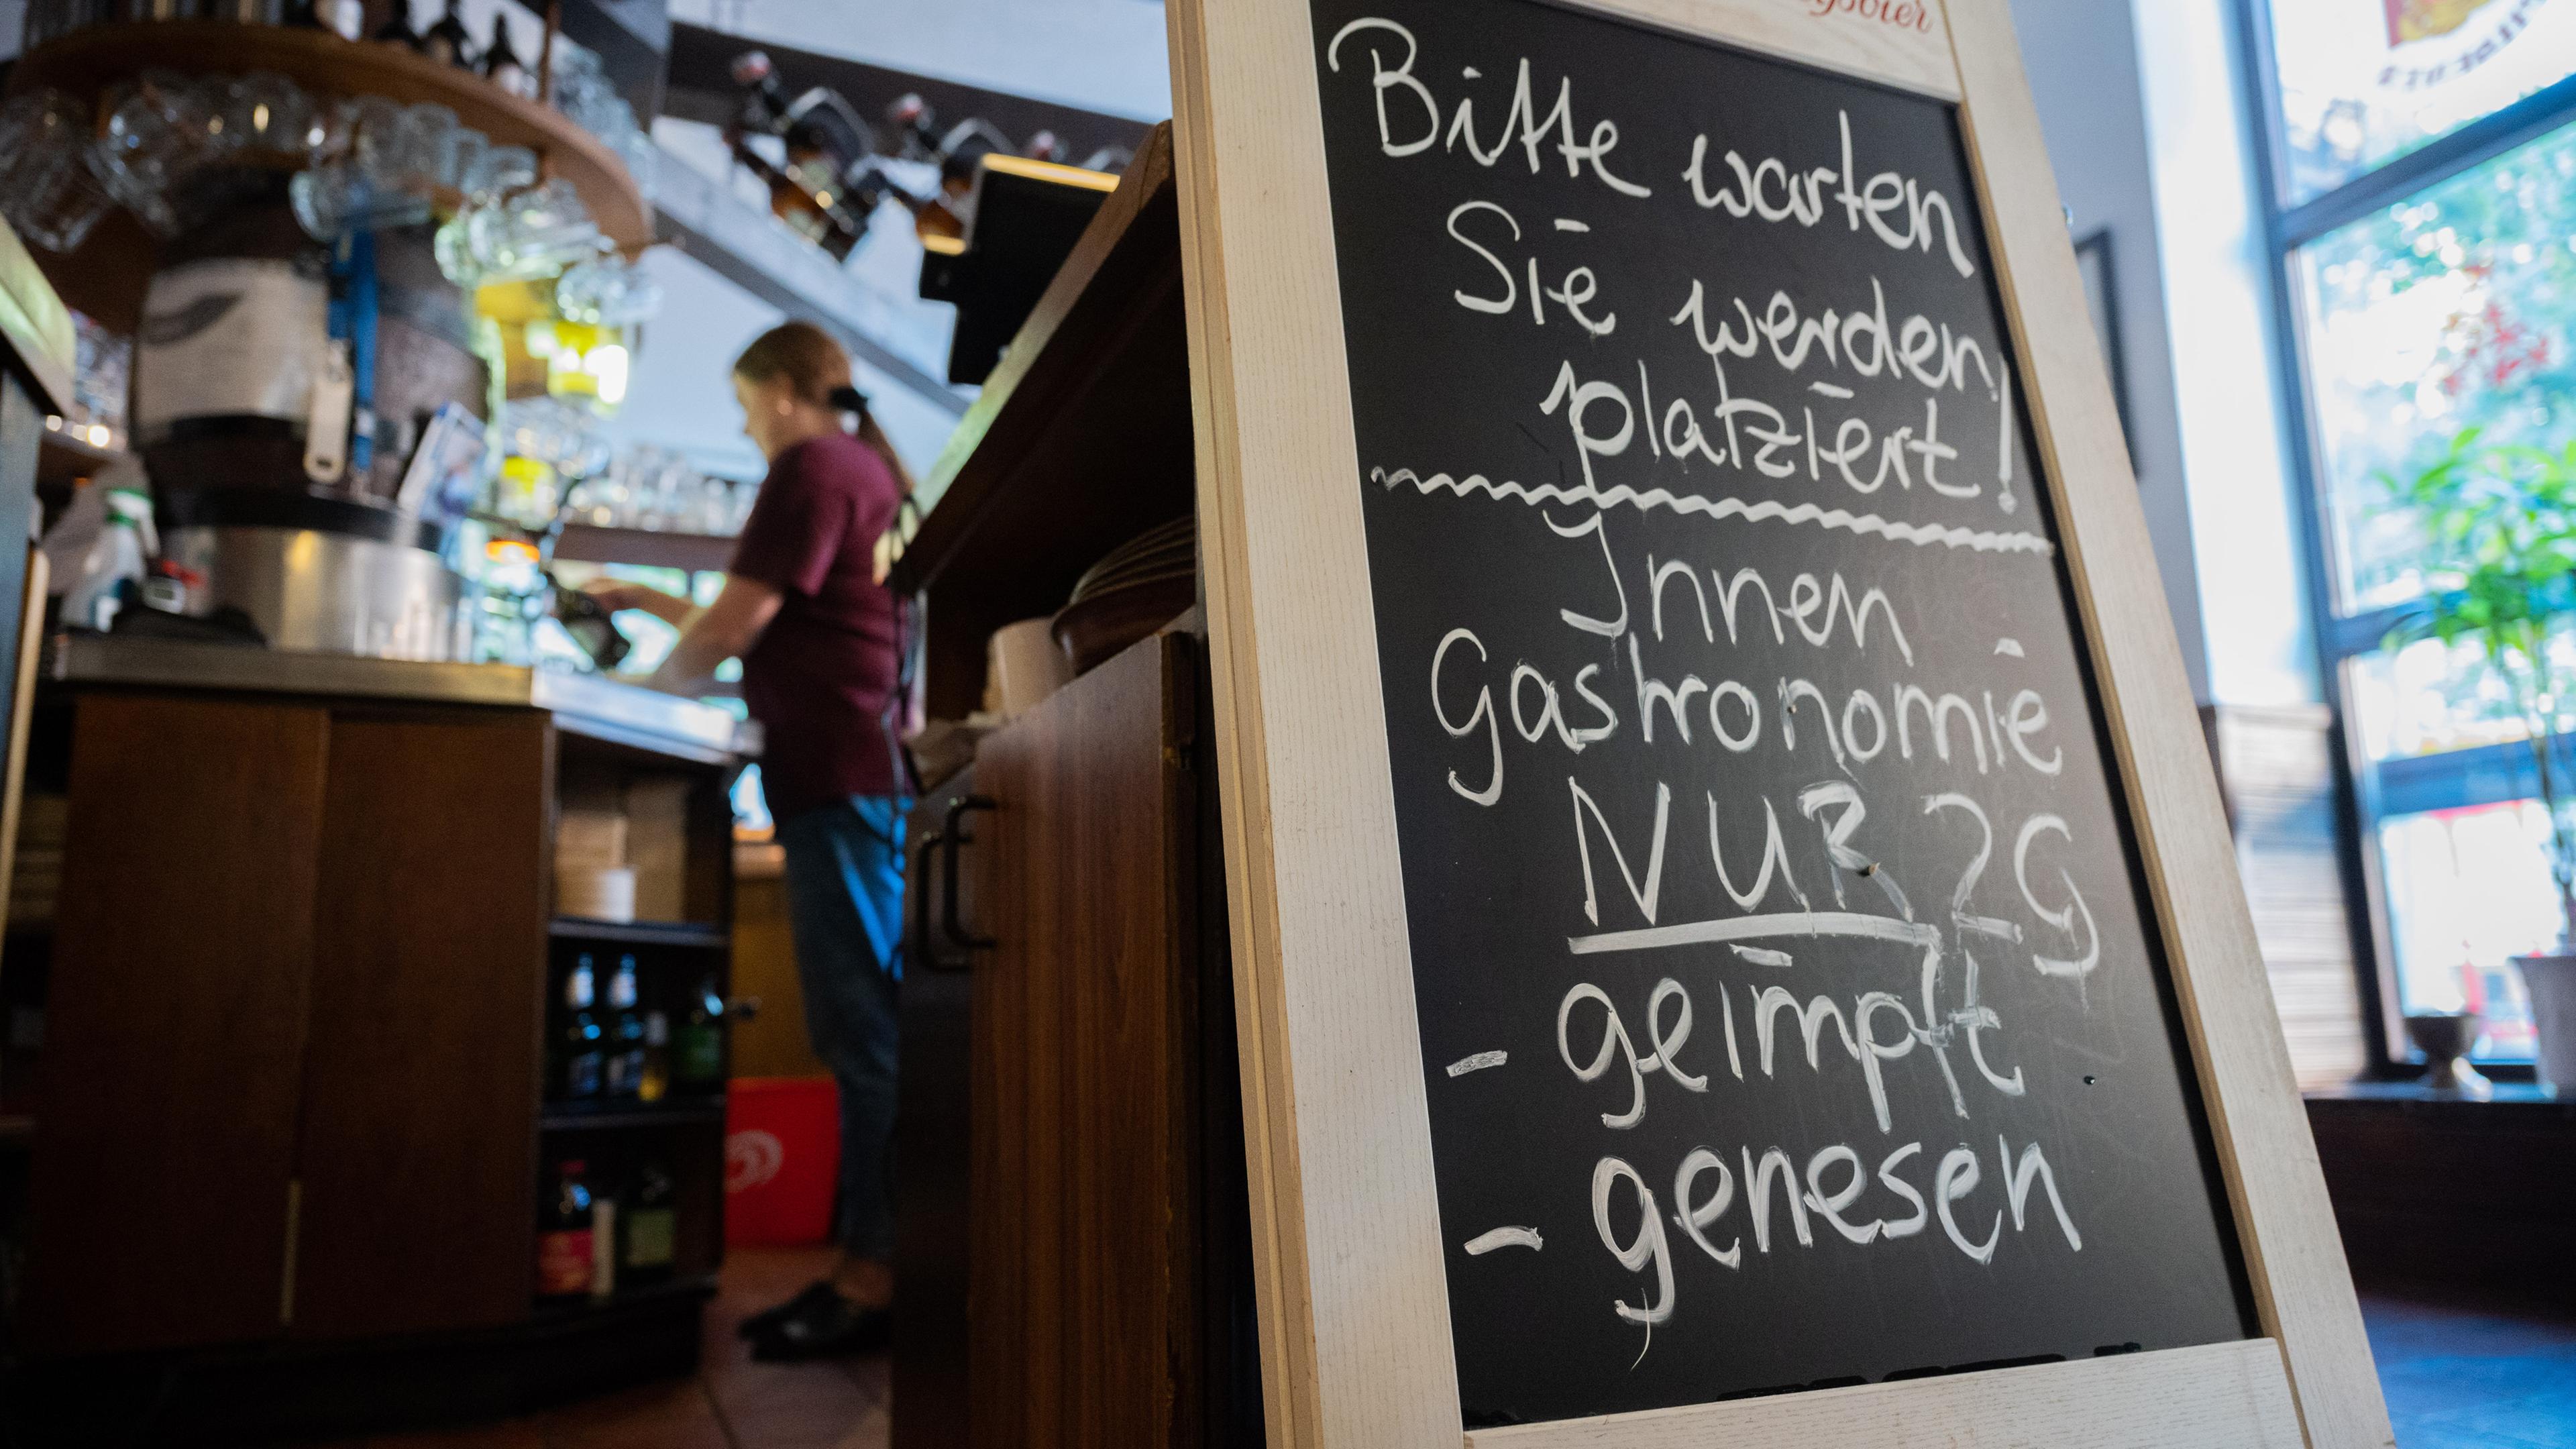 Bitte warten
Sie werden
platziert!
Innen
Gastronomie
NUR 2G
- geimpft
- genesen